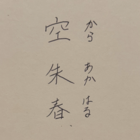 から
あか
はる
空
朱
春